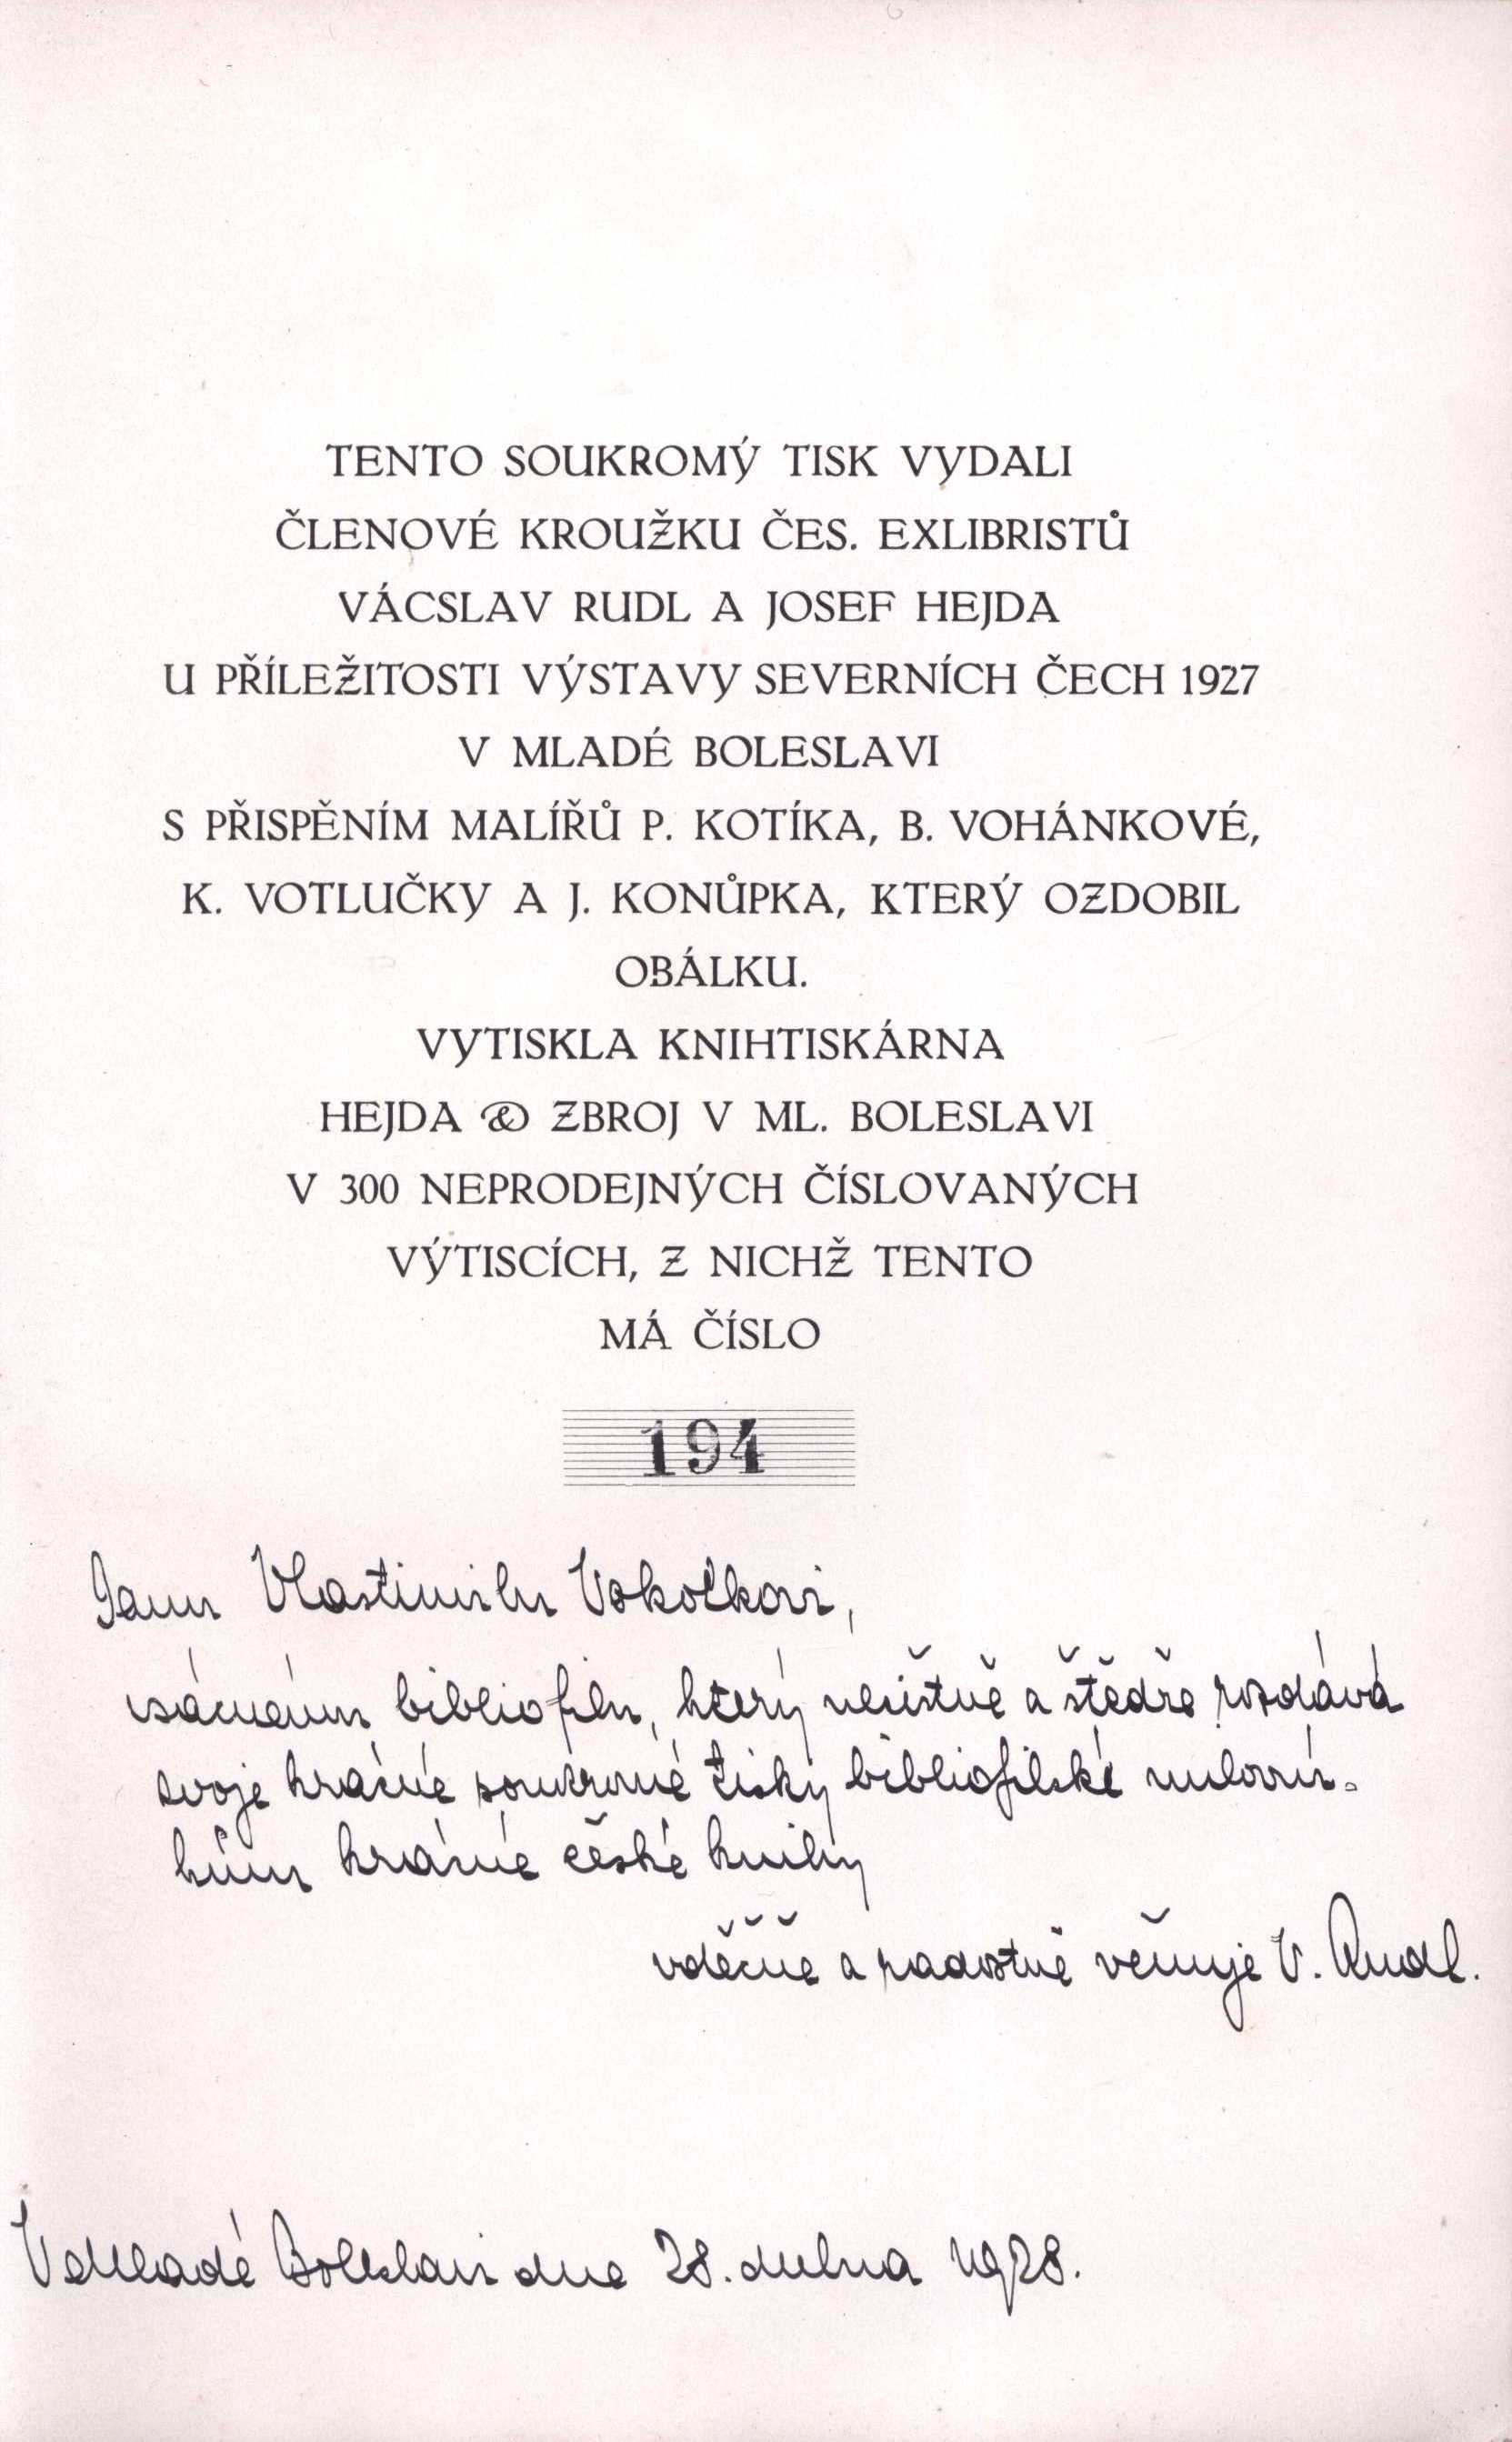 TENTO SOUKROMÝ TISK VYDALI
ČLENOVÉ KROUŽKU ČES. EXLIBRISTŮ
VÁCSLAV RUDL A JOSEF HEJDA
U PŘÍLEŽITOSTI VÝSTAVY SEVERNÍCH ČECH 1927
V MLADÉ BOLESLAVI
S PŘISPĚNÍM MALÍŘŮ P. KOTÍKA, B. VOHÁNKOVÉ,
K. VOTLUČKY A J. KONŮPKA, KTERÝ OZDOBIL
OBÁLKU.
VYTISKLA KNIHTISKÁRNA
HEJDA & ZBROJ V ML. BOLESLAVI
V 300 NEPRODEJNÝCH ČÍSLOVANÝCH
VÝTISCÍCH, Z NICHŽ TENTO
MÁ ČÍSLO
194
Panu Vlastimilu Vokolkovi,
vzácnému bibliofilu, který nezištně a štědře rozdává
svoje krásné soukromé tisky bibliofilské milovní-
kům krásné české knihy
vděčně a radostně věnuje V. Rudl.
V Mladé Boleslavi dne 28. dubna 1928.